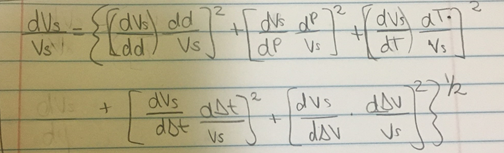 dVs/Vs = {[(dVs/dd) dd/Vs]² + [dVs/dP dP/Vs]² + [(dVs/dT) dT/Vs]²
+ [dVs/dΔt dΔt/Vs]² + [dVs/dΔV · dΔV/Vs]²}^1/2